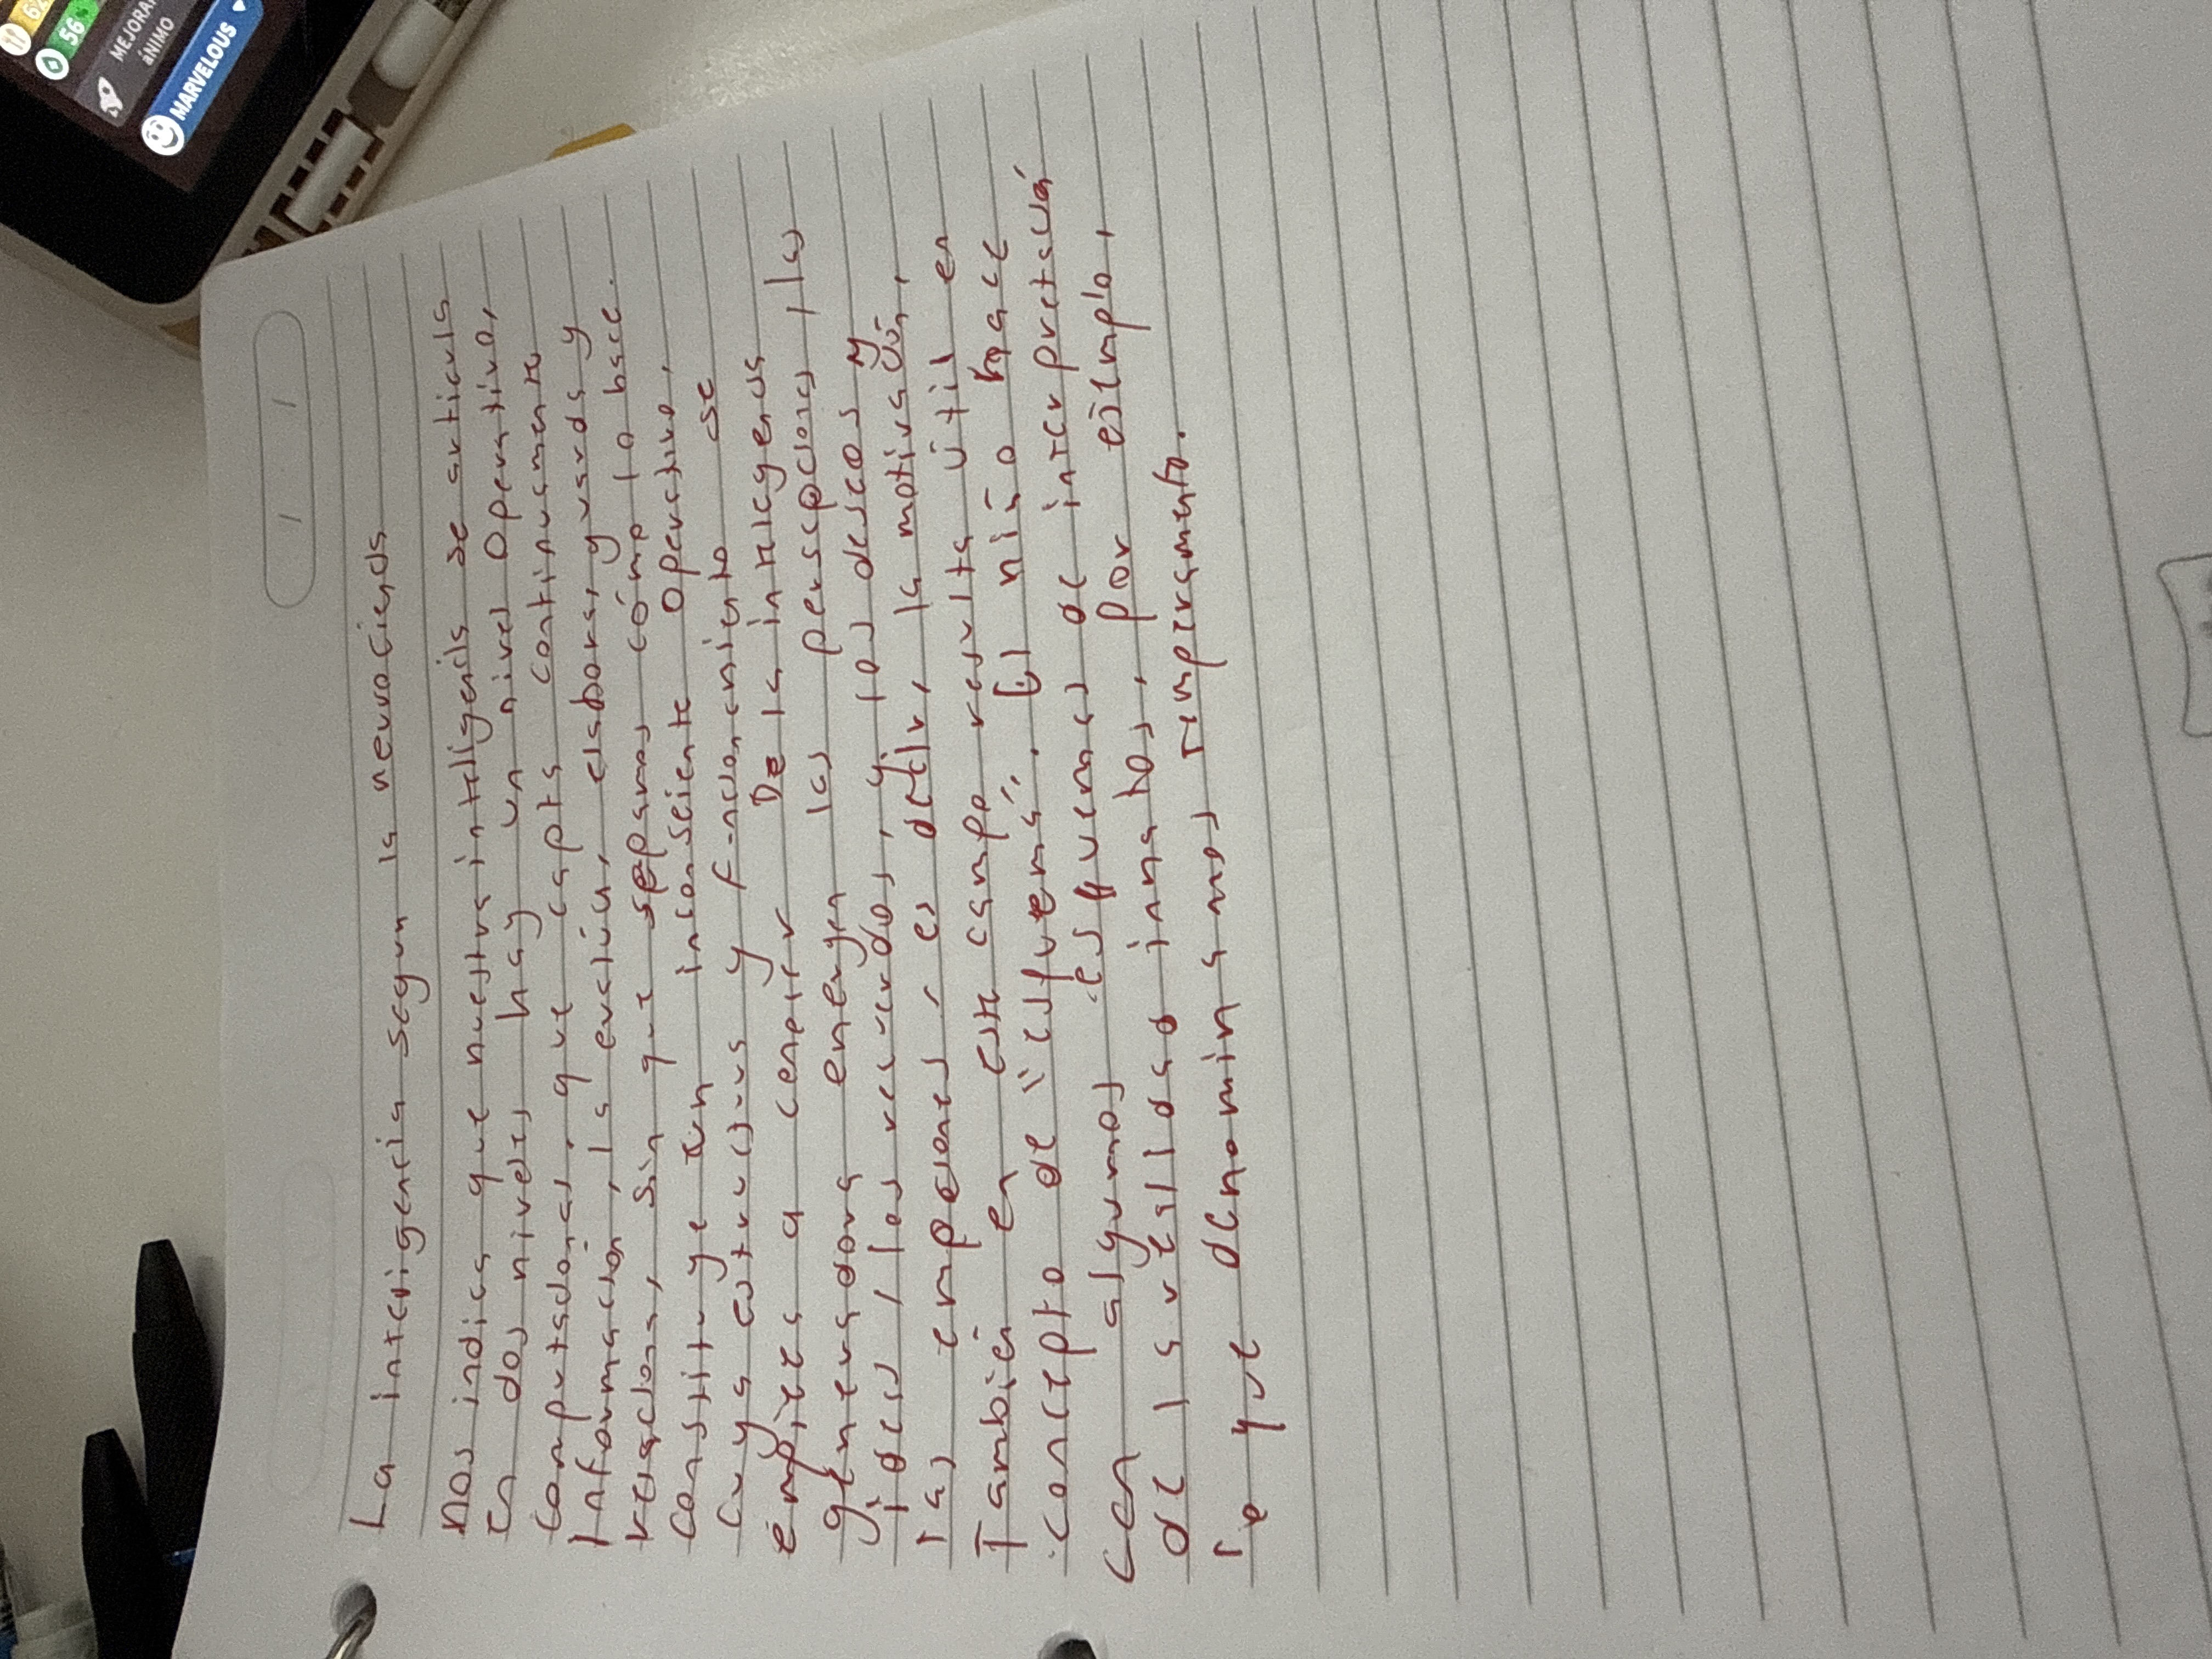 62
56
MEJORAR
áNIMO
MARVELOUS
La inteligencia segun la neurociencia
Nos indica que nuestra inteligencia se articula
en dos niveles, hay un nivel operativo,
computacional, que capta continuamente
Información, la evalúa, elabora, guarda y
relaciona, sin que sepamos cómo lo hace.
Constituye un inconsciente operativo,
cuya estructura y funcionamiento se
empieza a conocer De la inteligencia
generadora emergen las percepciones, las
ideas, los recuerdos, y los deseos y
las emociones, es decir, la motivación,
También en este campo resulta útil en
concepto de "esquema". El niño nace
con algunos esquemas de interpretación
de la realidad innatos, por ejemplo,
lo que denominamos temperamento.